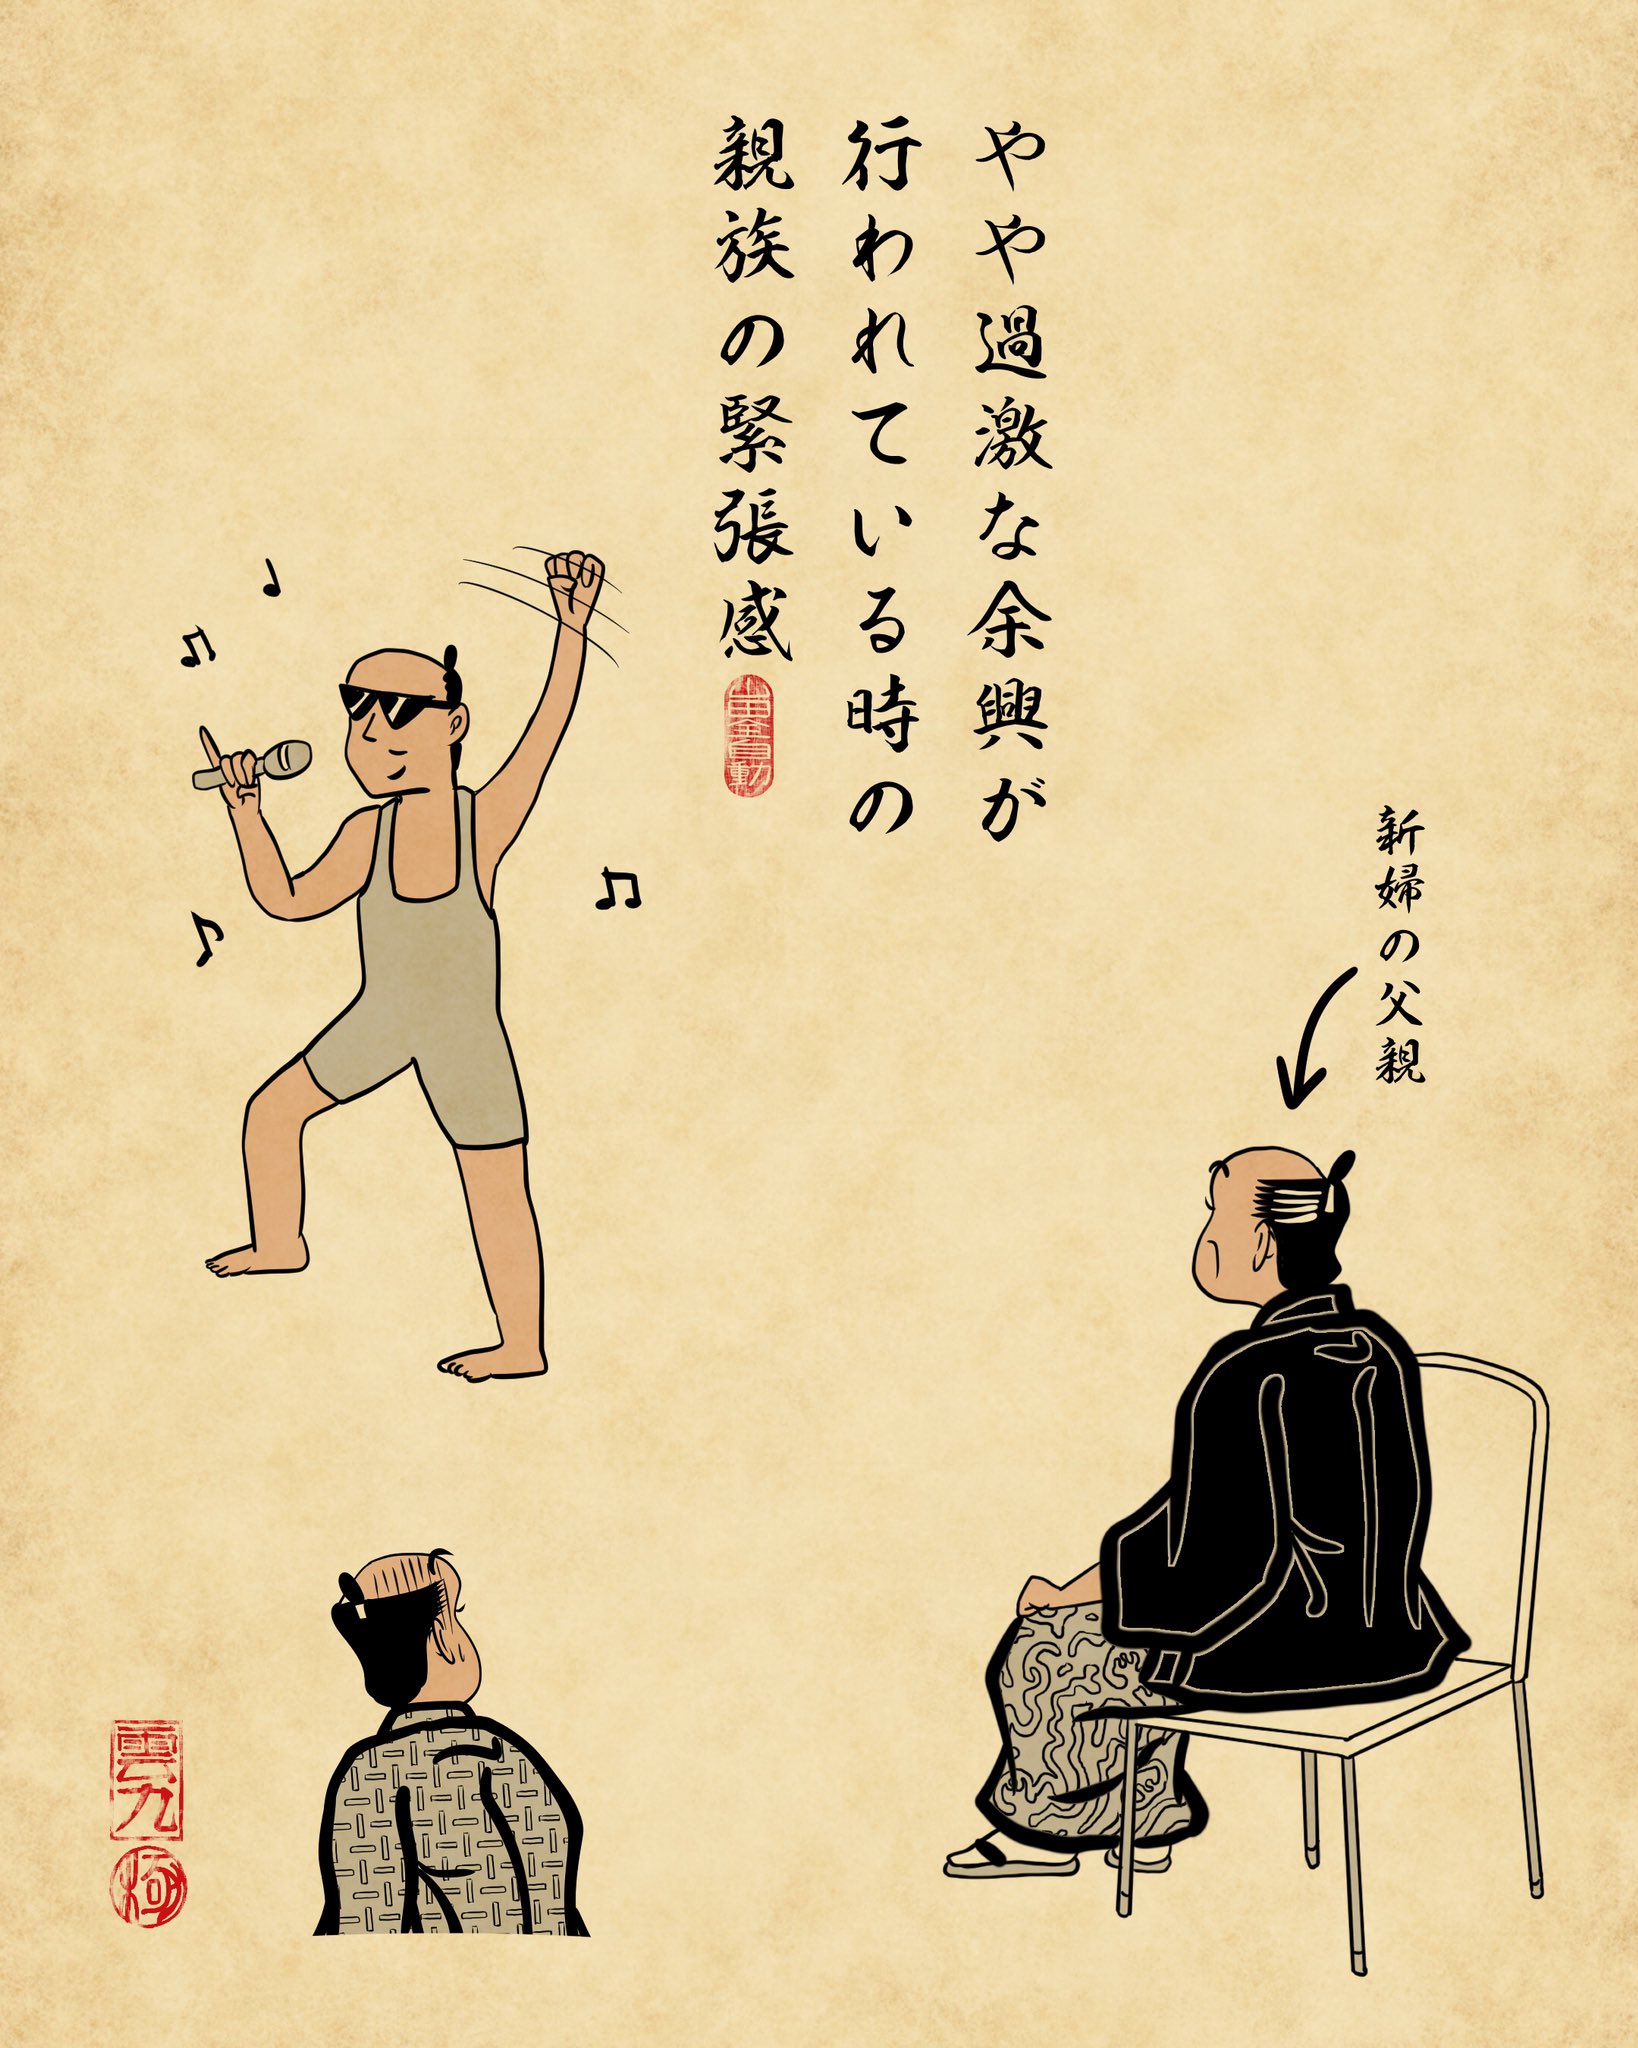 やや過激な余興が
行われている時の
親族の緊張感
山田全自動
新婦の父親
雲九
極